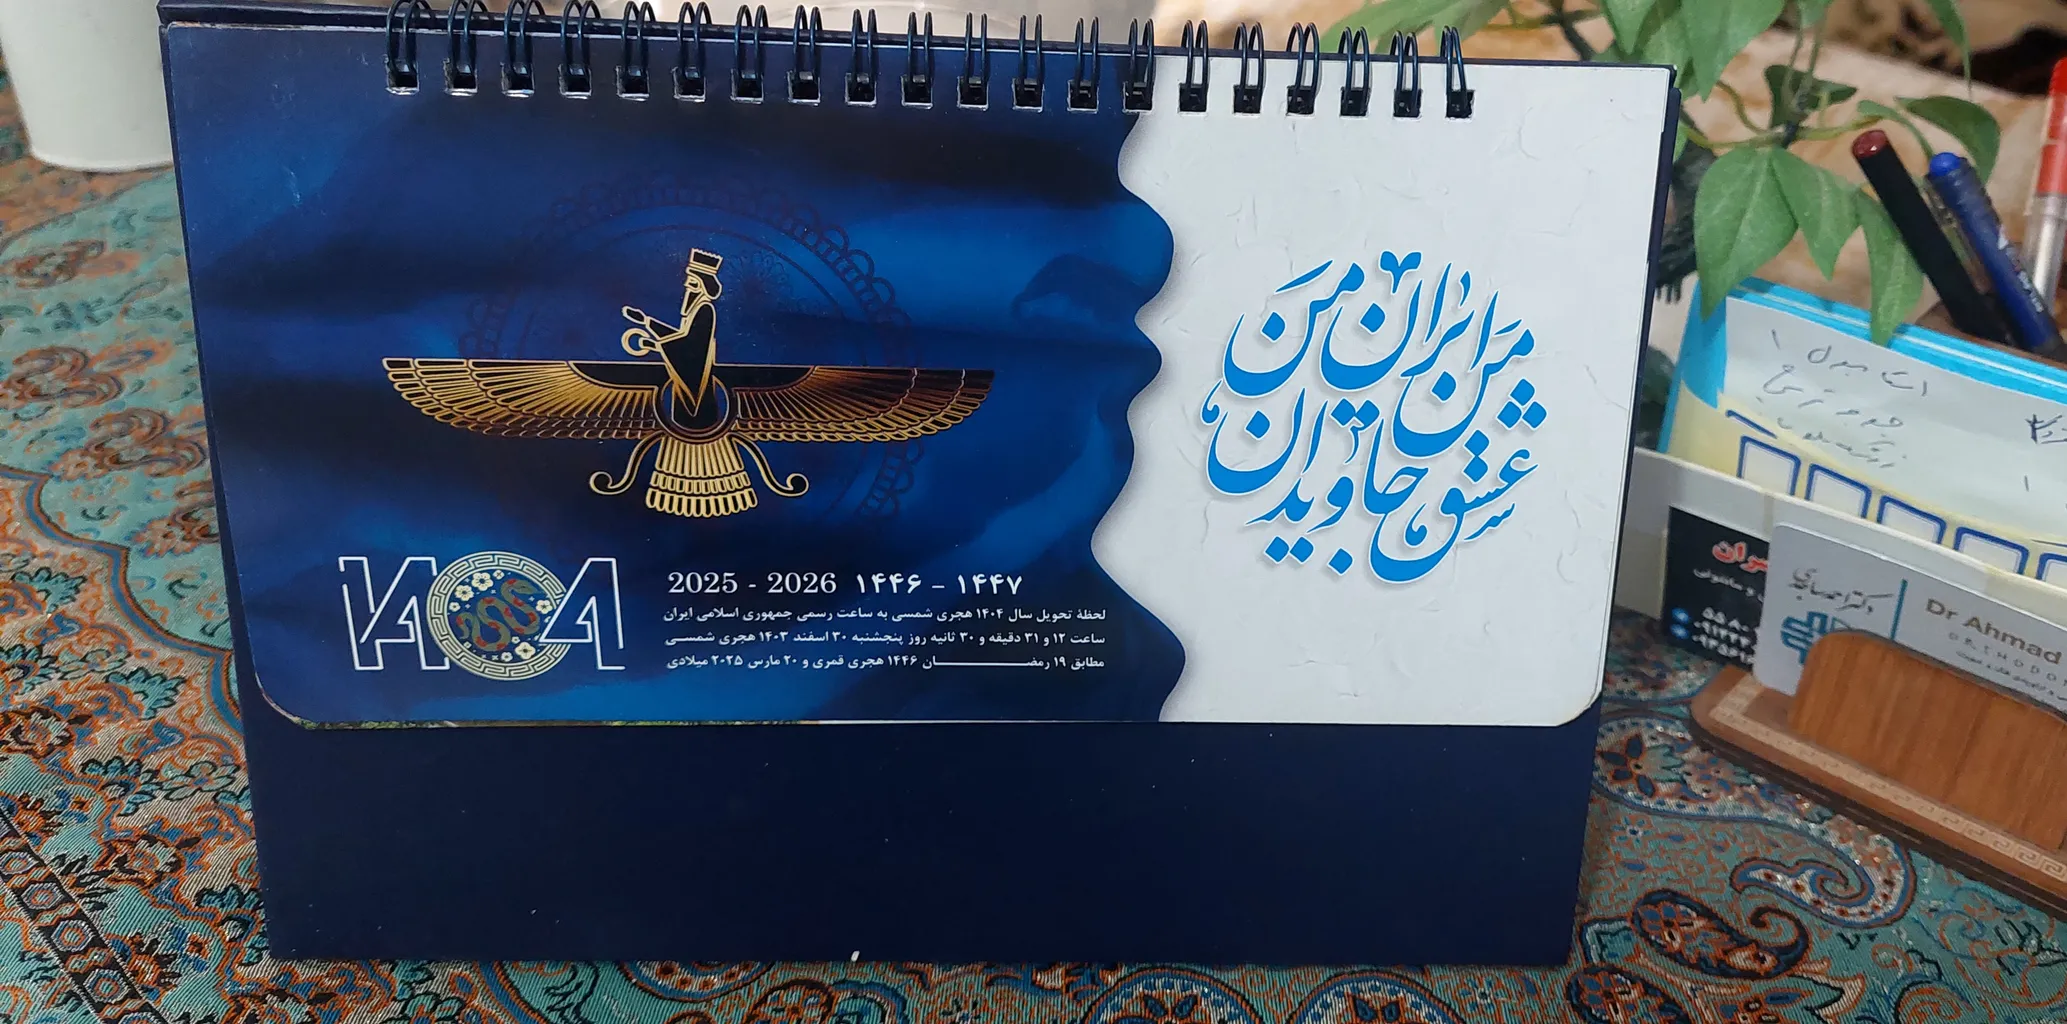 عشق جاویدان من ایران من
۱۴۰۴
2025 - 2026 ۱۴۴۶ - ۱۴۴۷
لحظهٔ تحویل سال ۱۴۰۴ هجری شمسی به ساعت رسمی جمهوری اسلامی ایران
ساعت ۱۲ و ۳۱ دقیقه و ۳۰ ثانیه روز پنجشنبه ۳۰ اسفند ۱۴۰۳ هجری شمسی
مطابق ۱۹ رمضان ۱۴۴۶ هجری قمری و ۲۰ مارس ۲۰۲۵ میلادی
دکتر احمد
Dr Ahmad